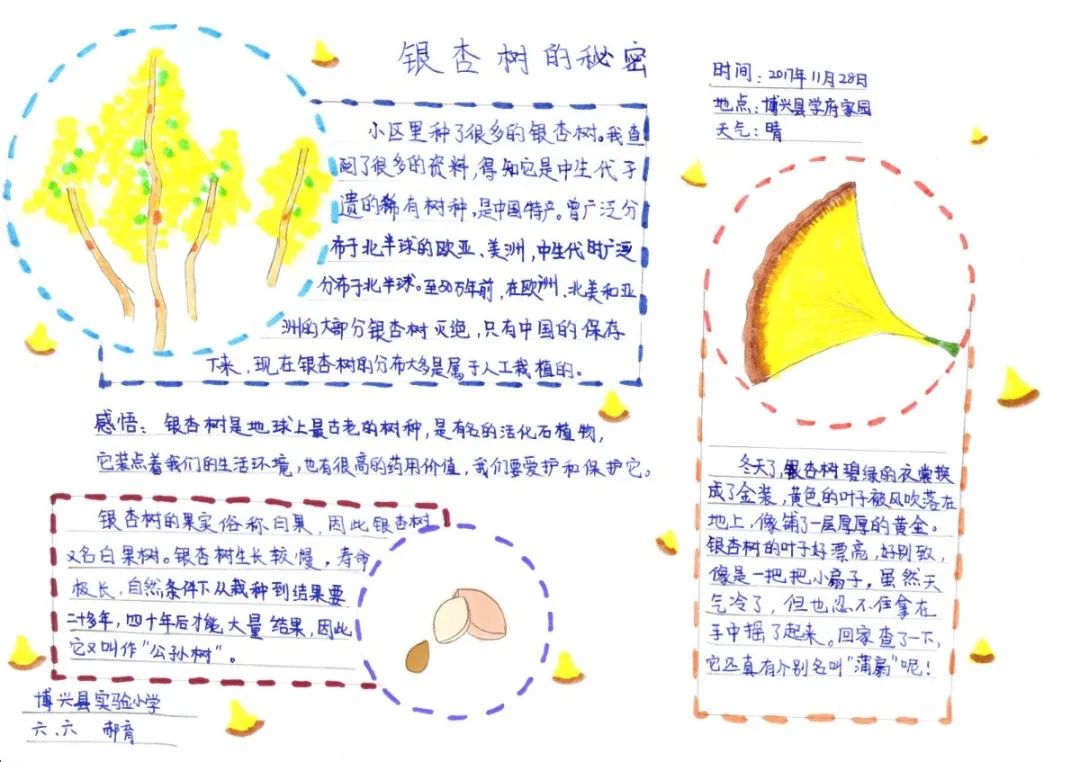 银杏树的秘密
时间：2017年11月28日
地点：博兴县学府家园
天气：晴
小区里种了很多的银杏树。我查
阅了很多的资料，得知它是中生代孑
遗的稀有树种，是中国特产。曾广泛分
布于北半球的欧亚、美洲，中生代时广泛
分布于北半球。至50万年前，在欧洲、北美和亚
洲的大部分银杏树灭绝，只有中国的保存
下来，现在银杏树的分布大多是属于人工栽植的。
感悟：银杏树是地球上最古老的树种，是有名的活化石植物，
它装点着我们的生活环境，也有很高的药用价值，我们要爱护和保护它。
银杏树的果实俗称白果，因此银杏树
又名白果树。银杏树生长较慢，寿命
极长，自然条件下从栽种到结果要
二十多年，四十年后才能大量结果，因此
它又叫作“公孙树”。
冬天了，银杏树碧绿的衣裳换
成了金装，黄色的叶子被风吹落在
地上，像铺了一层厚厚的黄金。
银杏树的叶子好漂亮，好别致，
像是一把把小扇子，虽然天
气冷了，但也忍不住拿在
手中摇了起来。回家查了一下，
它还真有个别名叫“蒲扇”呢！
博兴县实验小学
六、六 郝育